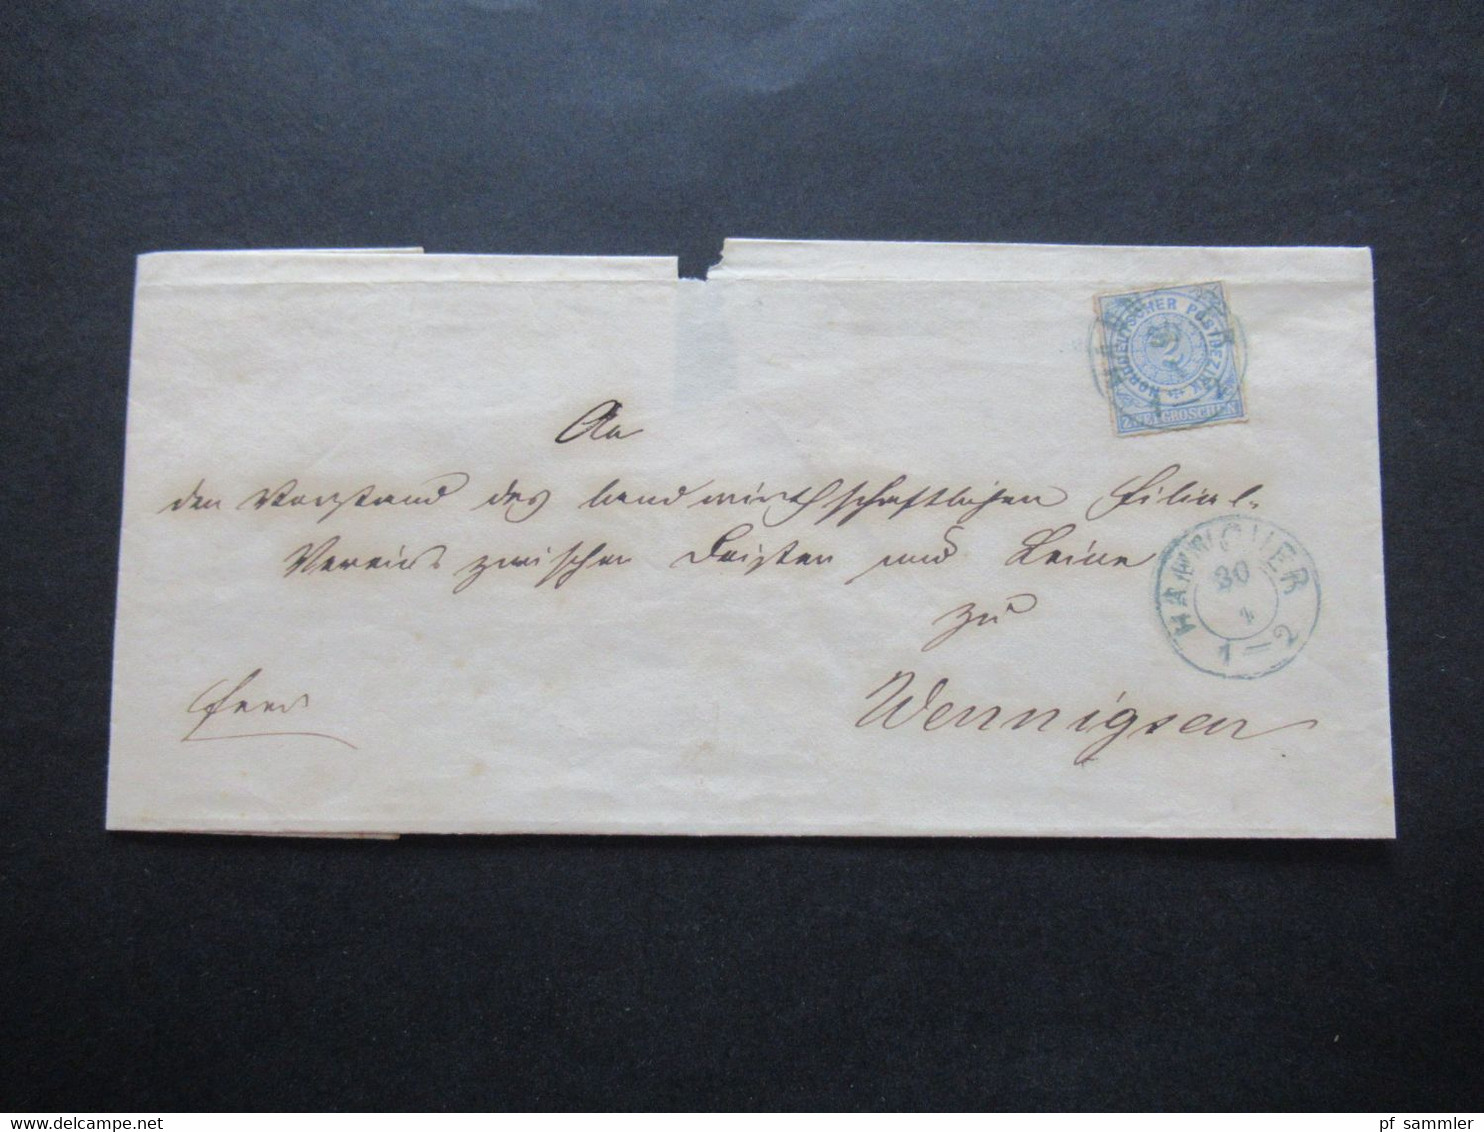 NORDDEUTSCHER POSTBEZIRK
2
ZWEI GROSCHEN
An
den Vorstand des landwirthschaftlichen Filial-
Vereins zwischen Deister und Leine
zu
Wennigsen
HANNOVER
30
4
1-2
pf_sammler
delcampe.net